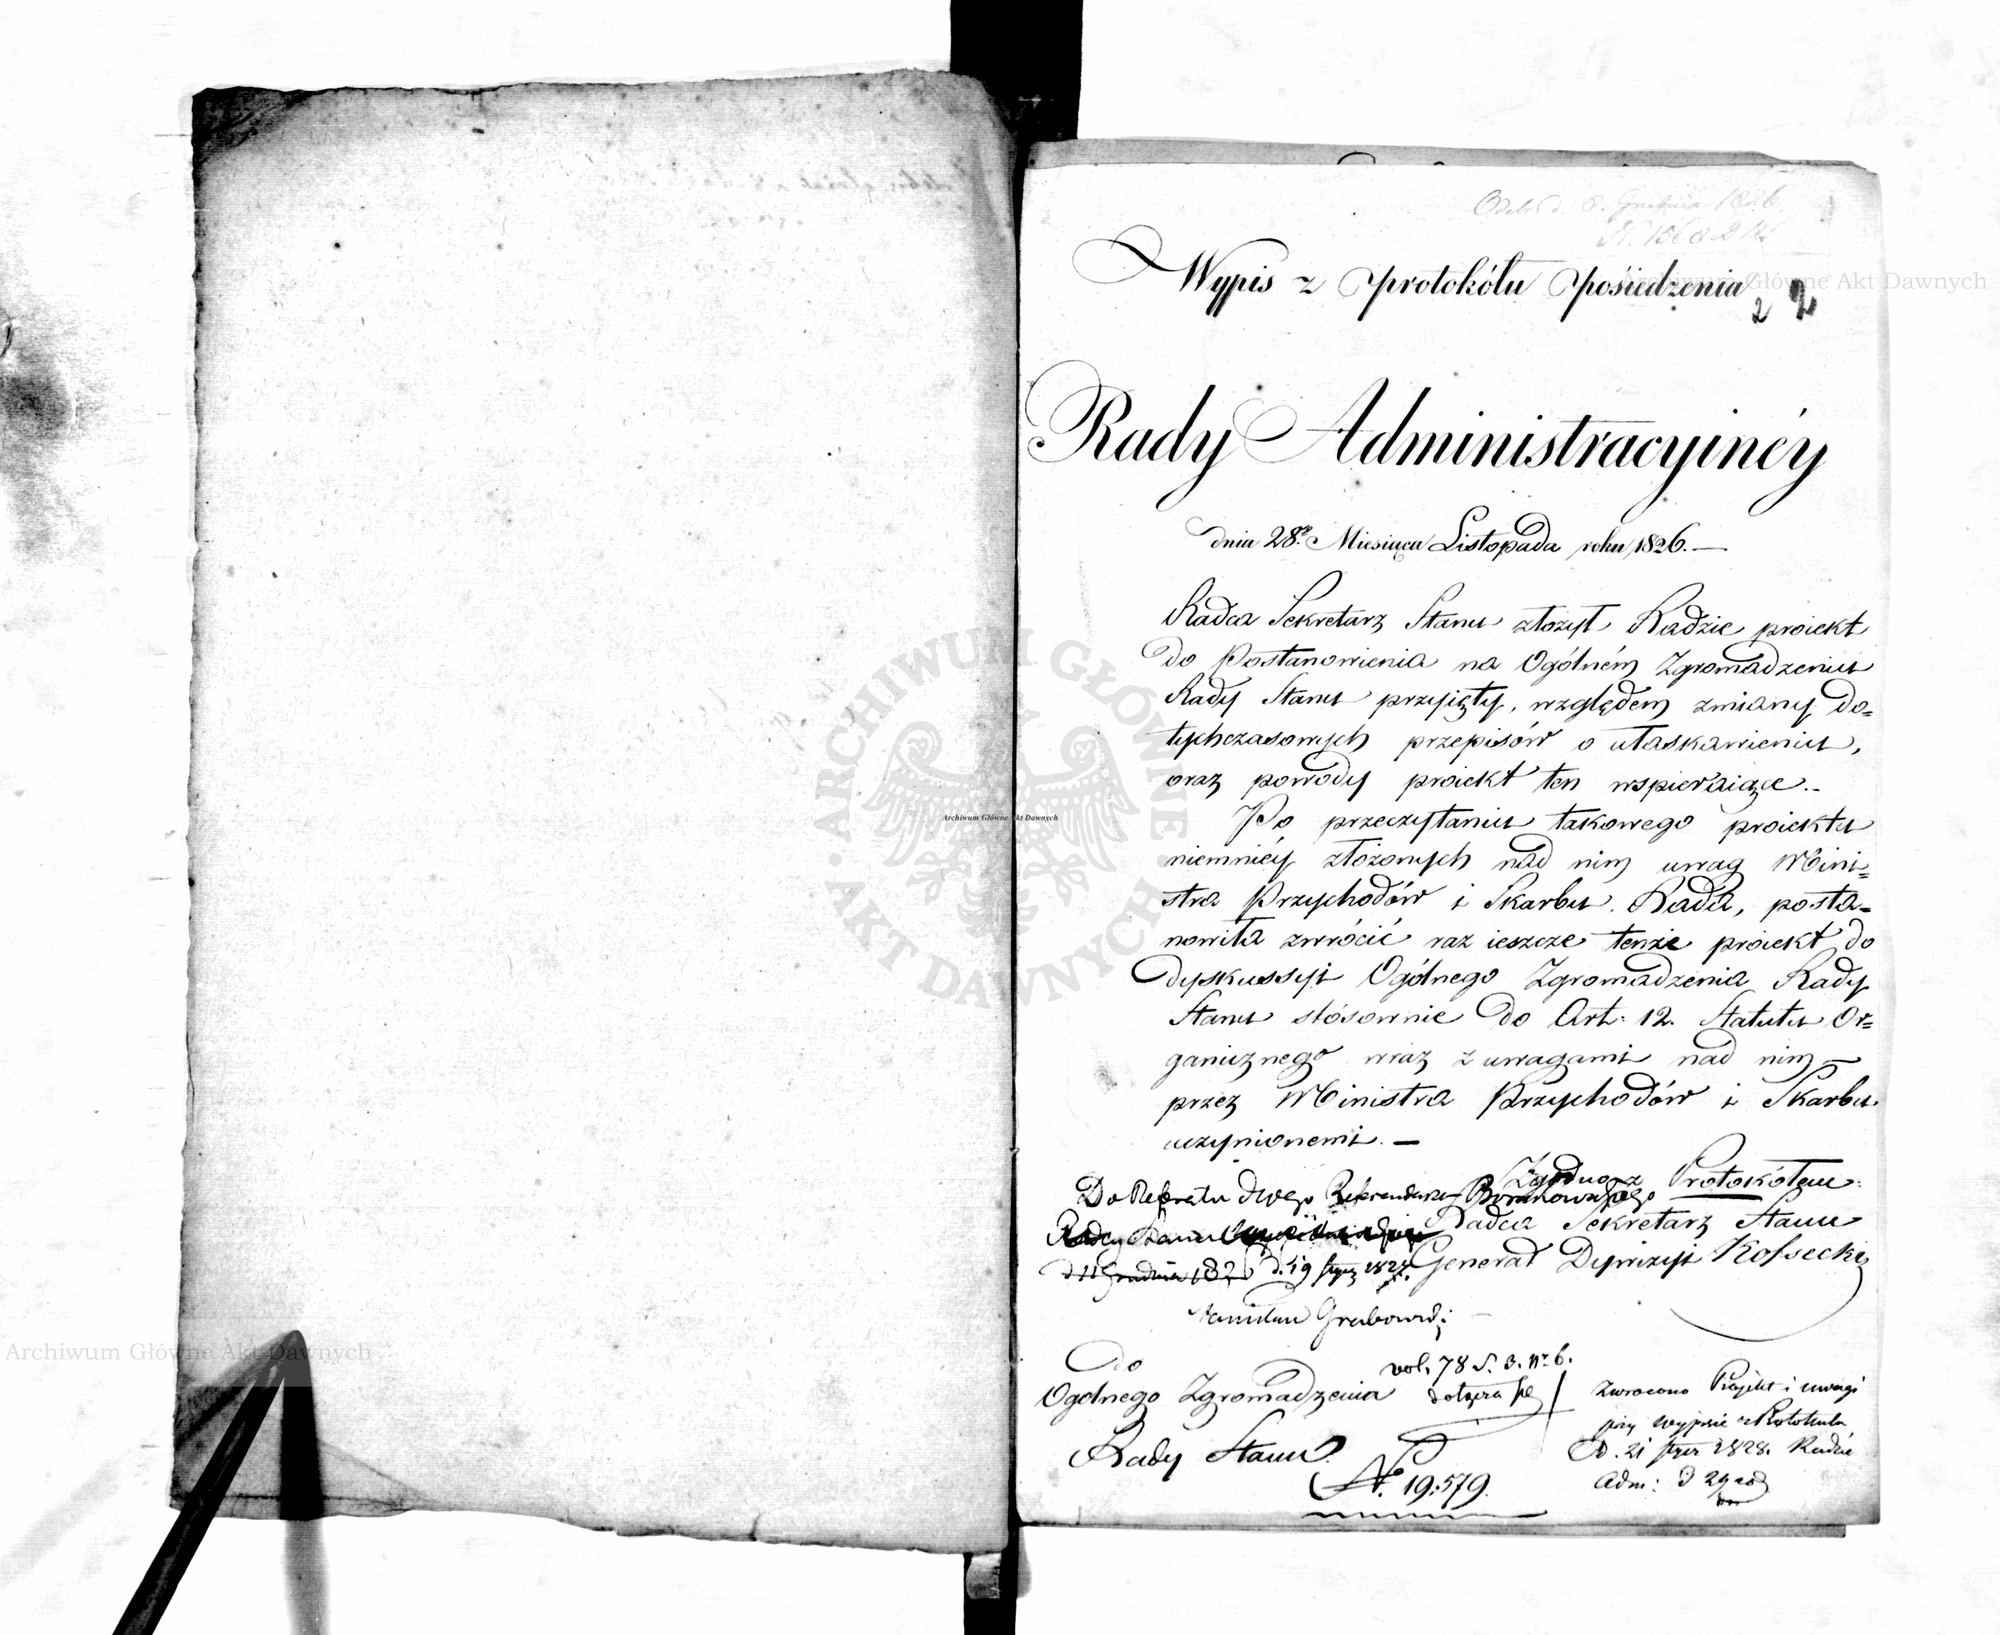 Odebr. d. 8. Grudnia 1826.
Wypis z protokółu posiedzenia
2 2
Rady Administracyinéy
dnia 28go Miesiąca Listopada roku 1826. —
Radca Sekretarz Stanu złożył Radzie proiekt
do Postanowienia na Ogólném Zgromadzeniu
Rady Stanu przyięty, względem zmiany do=
tychczasowych przepisów o ułaskawieniu,
oraz powody proiekt ten wspieraiące.-
Po przeczytaniu takowego proiektu
niemniéy złożonych nad nim uwag Mini=
stra Przychodów i Skarbu. Rada, posta=
nowiła zwrócić raz ieszcze tenże proiekt do
dyskussyi Ogólnego Zgromadzenia Rady
Stanu stósownie do Art: 12. Statutu Or=
ganicznego wraz z uwagami nad nim
przez Ministra Przychodów i Skarbu
uczynionemi. —
Zgodno z Protokółem:
Radca Sekretarz Stanu
Generał Dywizyi Kossecki
Do Referatu Referendarza
Rady Stanu
d 11 Grudnia 182 d. 19 stycz 1828.
Stanisław Grabowski
Do
Ogólnego Zgromadzenia
Rady Stanu
vol. 78 S. 3. nr 6.
dołącza się
N. 19.579.
Zwrocono Projekt i uwagi
przy wypisie z Protokułu
D. 21 stycz 1828. Radzie
Adm: d 29
Archiwum Główne Akt Dawnych
Archiwum Główne Akt Dawnych
Archiwum Główne Akt Dawnych
ARCHIWUM GŁÓWNE · AKT DAWNYCH ·